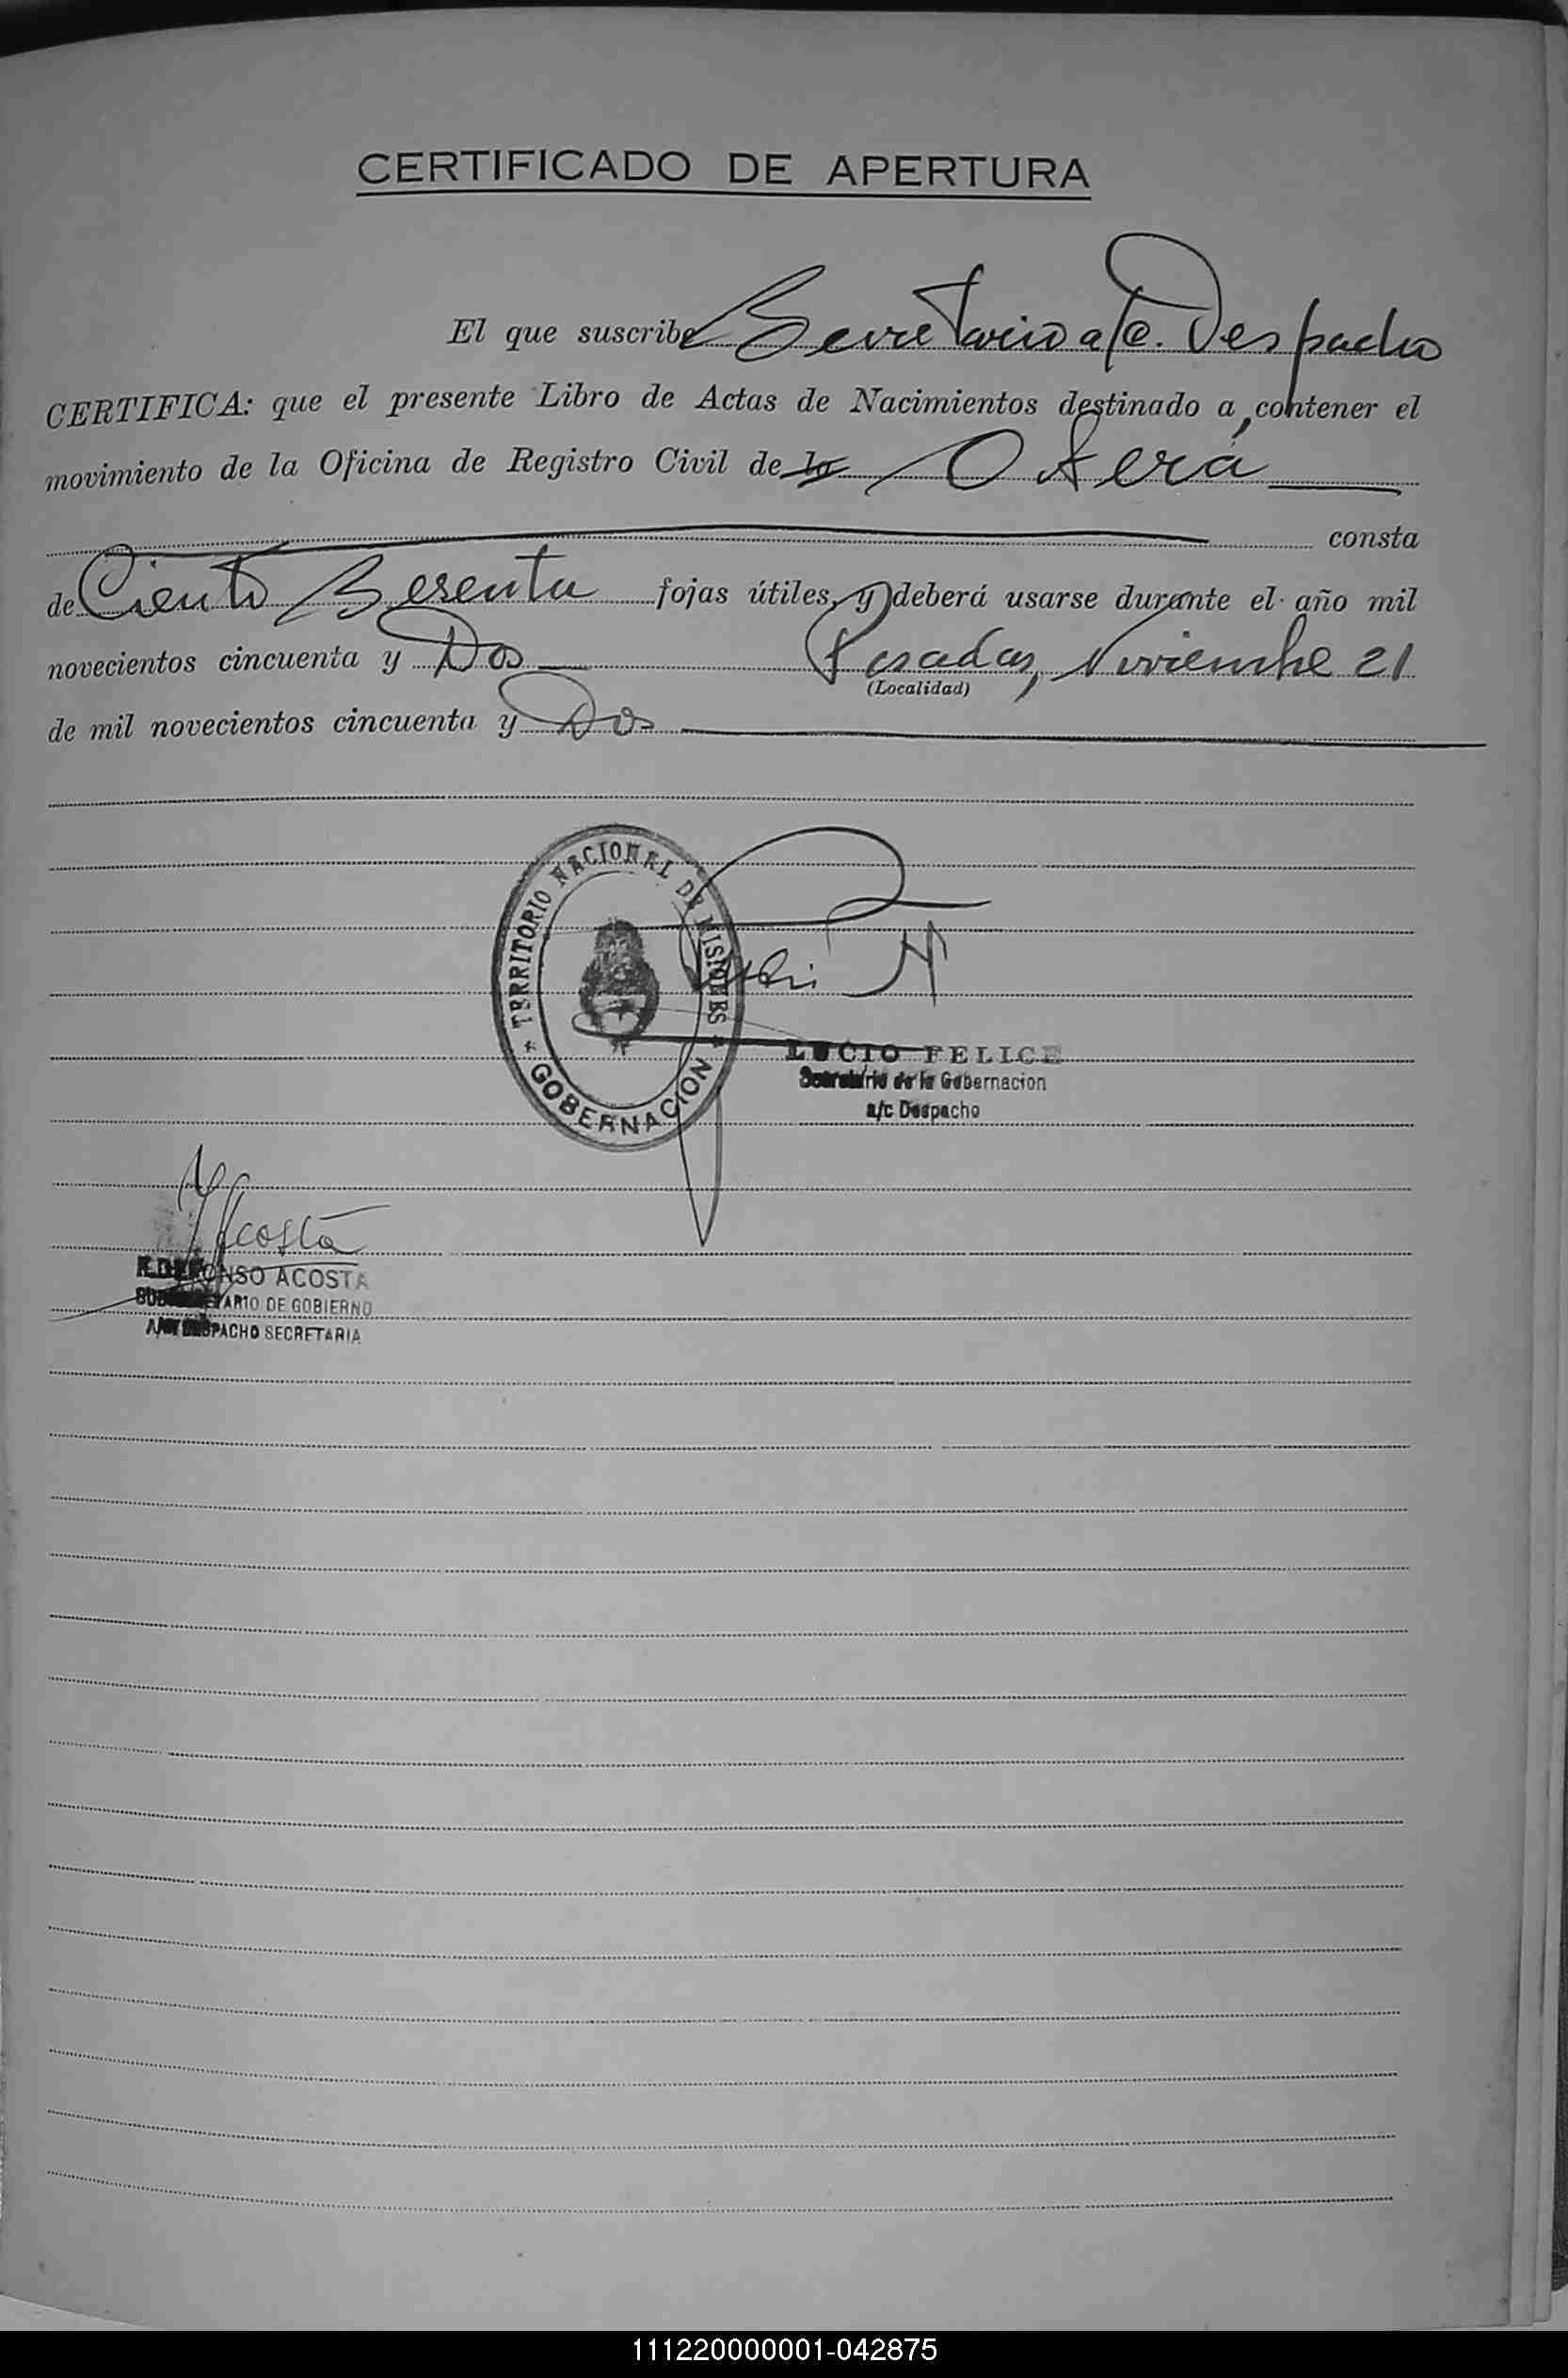 CERTIFICADO DE APERTURA
El que suscribe Secretario a/c. Despacho
CERTIFICA: que el presente Libro de Actas de Nacimientos destinado a contener el
movimiento de la Oficina de Registro Civil de la Oberá
consta
de Ciento Sesenta fojas útiles, y deberá usarse durante el año mil
novecientos cincuenta y Dos Posadas, Noviembre 21
(Localidad)
de mil novecientos cincuenta y Dos
TERRITORIO NACIONAL DE MISIONES
GOBERNACION
LUCIO FELICE
Secretario de la Gobernacion
a/c Despacho
Acosta
ACOSTA
SUBSECRETARIO DE GOBIERNO
DESPACHO SECRETARIA
111220000001-042875